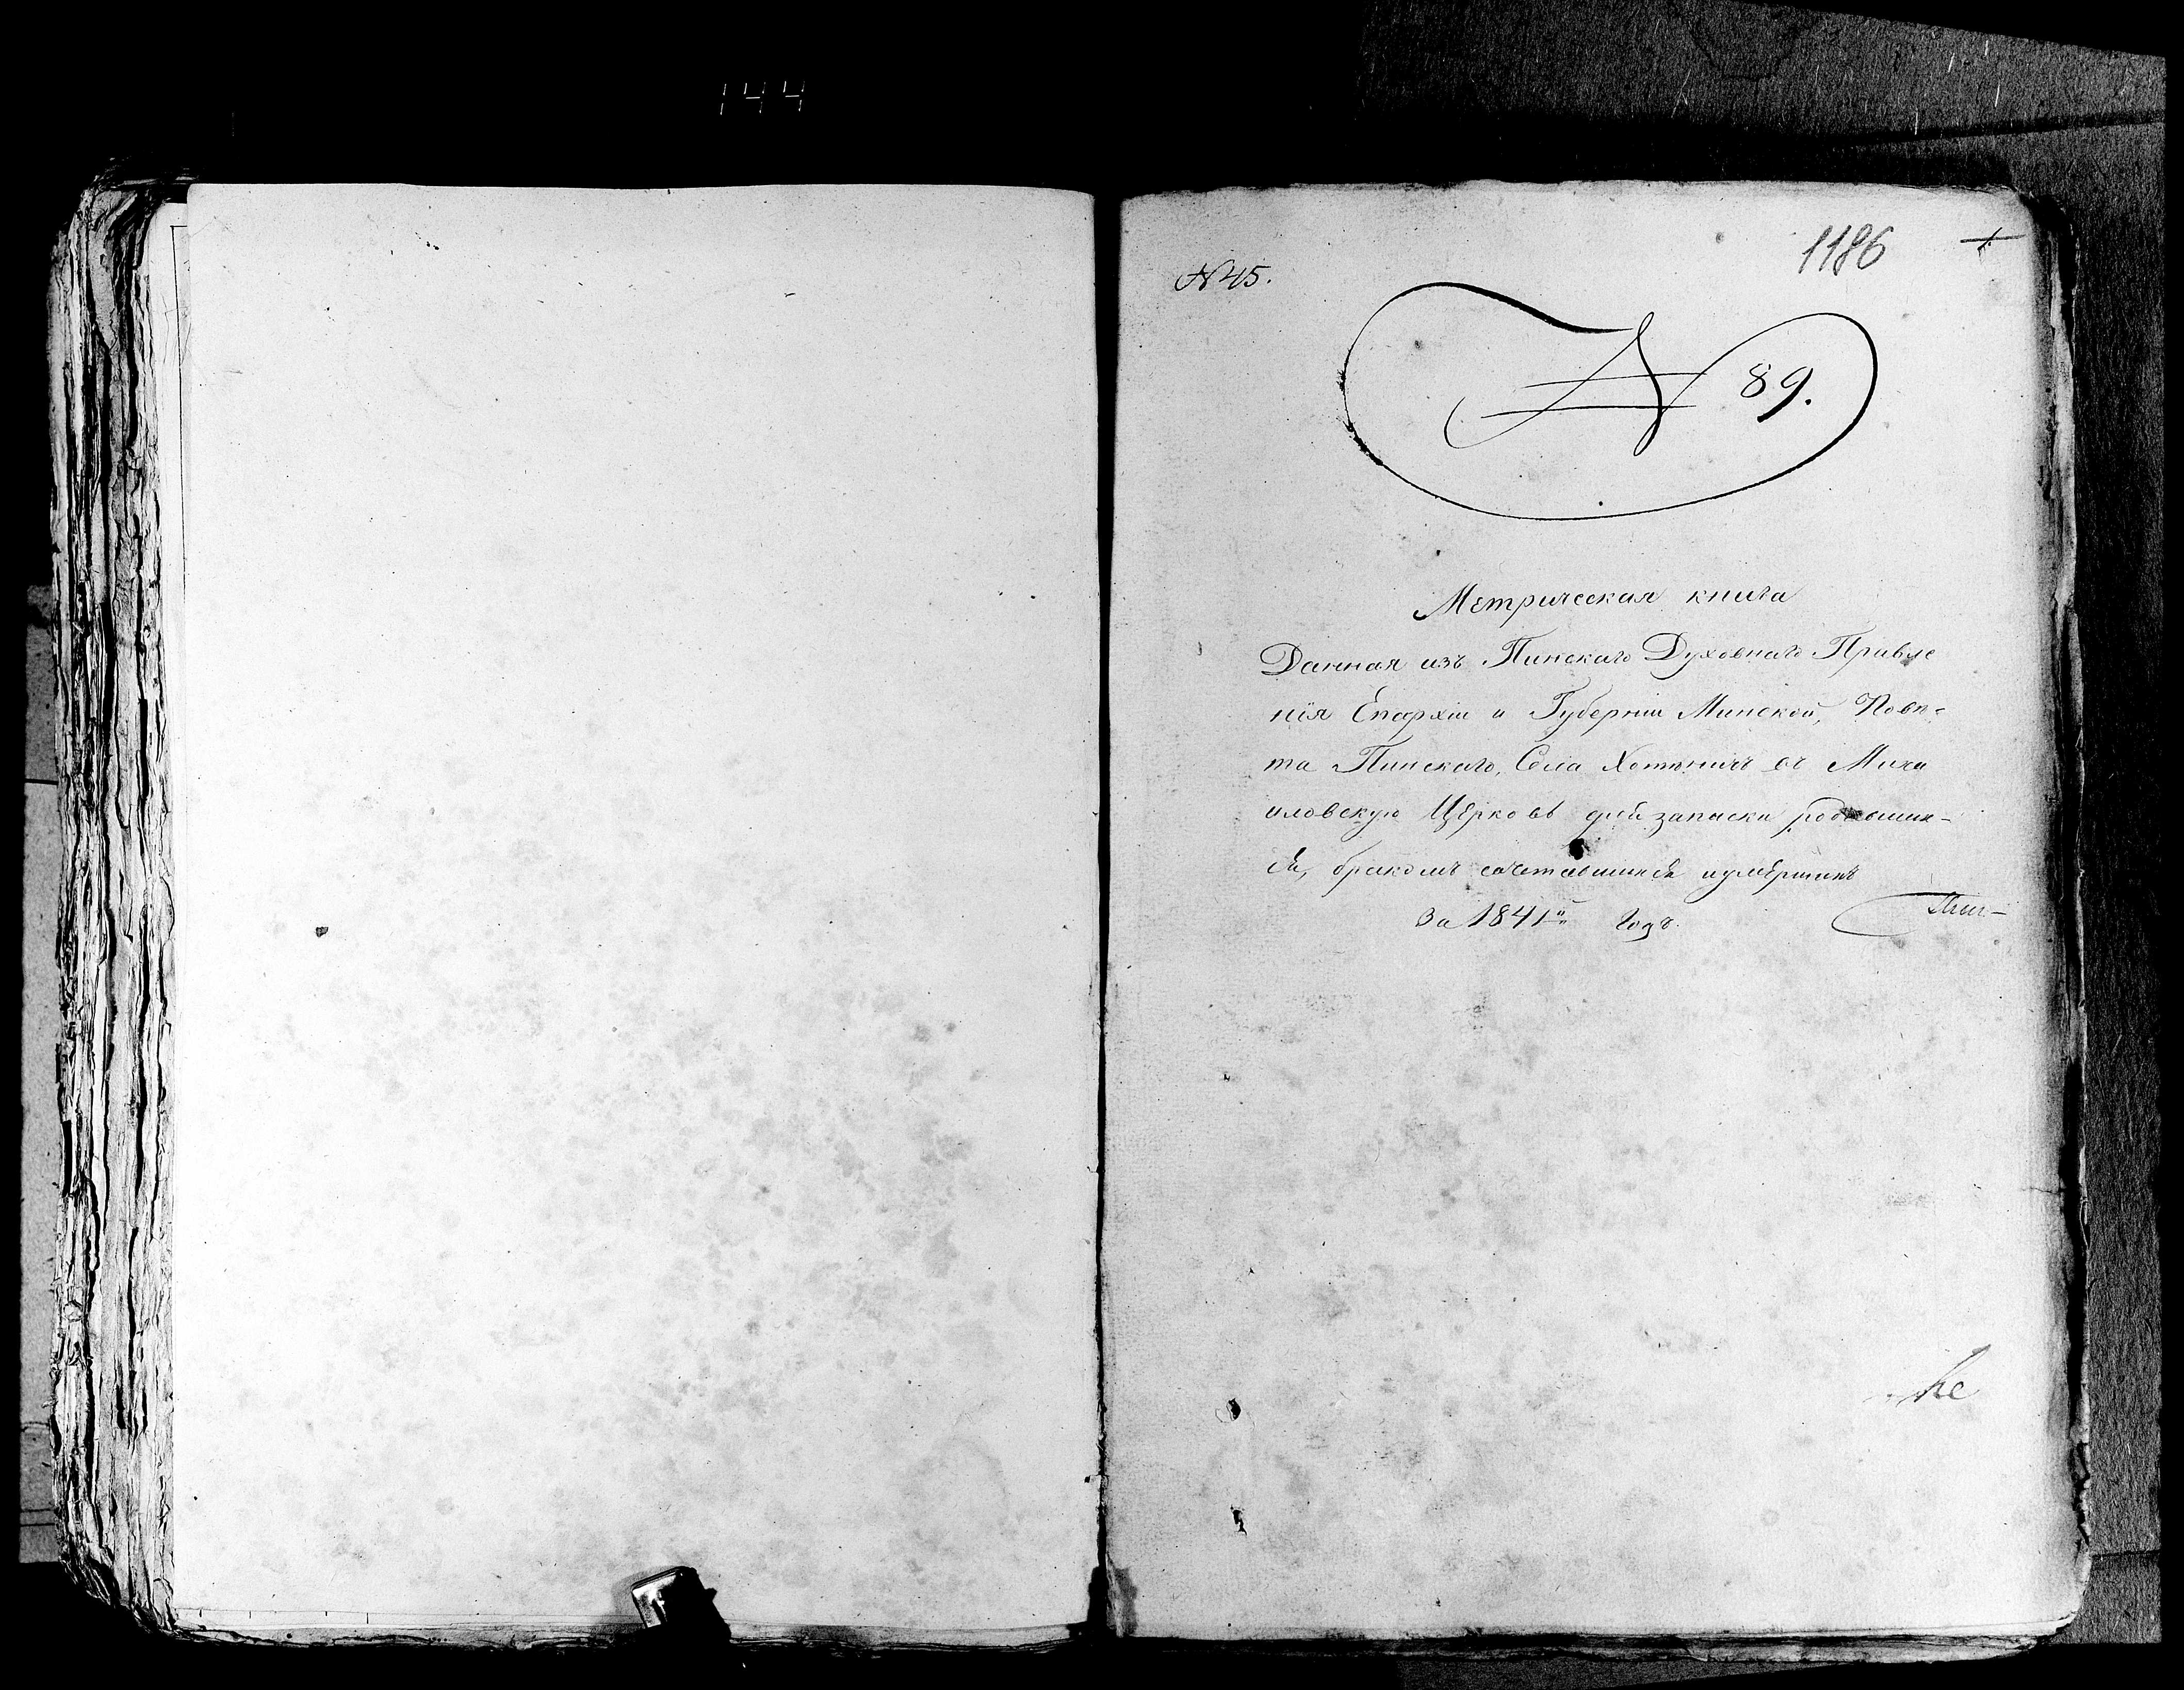 144
1186
1.
N 45.
N 89.
Метрическая книга
Данная изъ Пинскаго Духовнаго Правле
нія Епархіи и Губерніи Минской, Повѣ-
та Пинскаго, Села Хотыничъ въ Миха
иловскую Церковь для записки родивших-
ся, бракомъ сочетавшихся и умершихъ
За 1841й Годъ.
Пин-